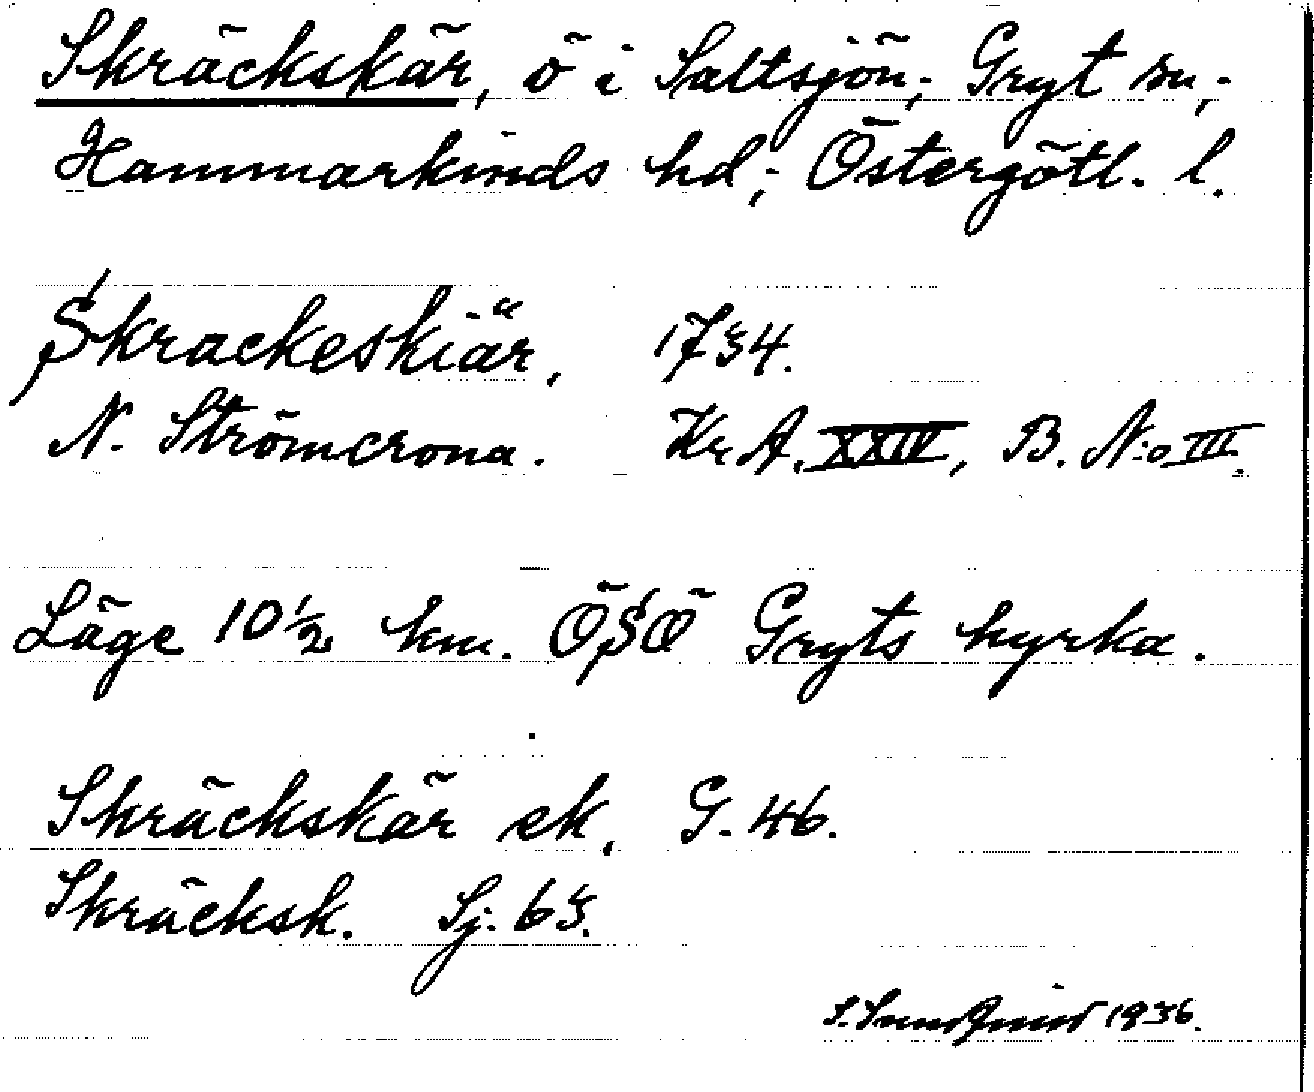 Skräckskär, ö i Saltsjön; Gryt sn,;
Hammarkinds hd,; Östergötl. l.
Skrackeskiär, 1734.
N. Strömcrona. Kr. A. XXIV, B. N:o III.
Läge 10 1/2 km. ÖSÖ Gryts kyrka.
Skräckskär ek, G. 46.
Skräcksk. Sj. 63.
S. 1936.